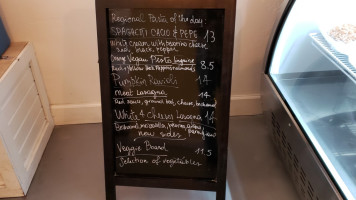 Regional Pasta of the day:
SPAGHETTI CACIO & PEPE 13
cream with pecorino cheese
and black pepper
Vegan Pesto Linguine 8.5
Pumpkin Ravioli 14
meat Lasagna 14
Red sauce, ground beef, cheese, bechamel
White 4 Cheeses Lasagna 14
Bechamel, mozzarella,
new sides
Veggie Board 11.5
Selection of vegetables